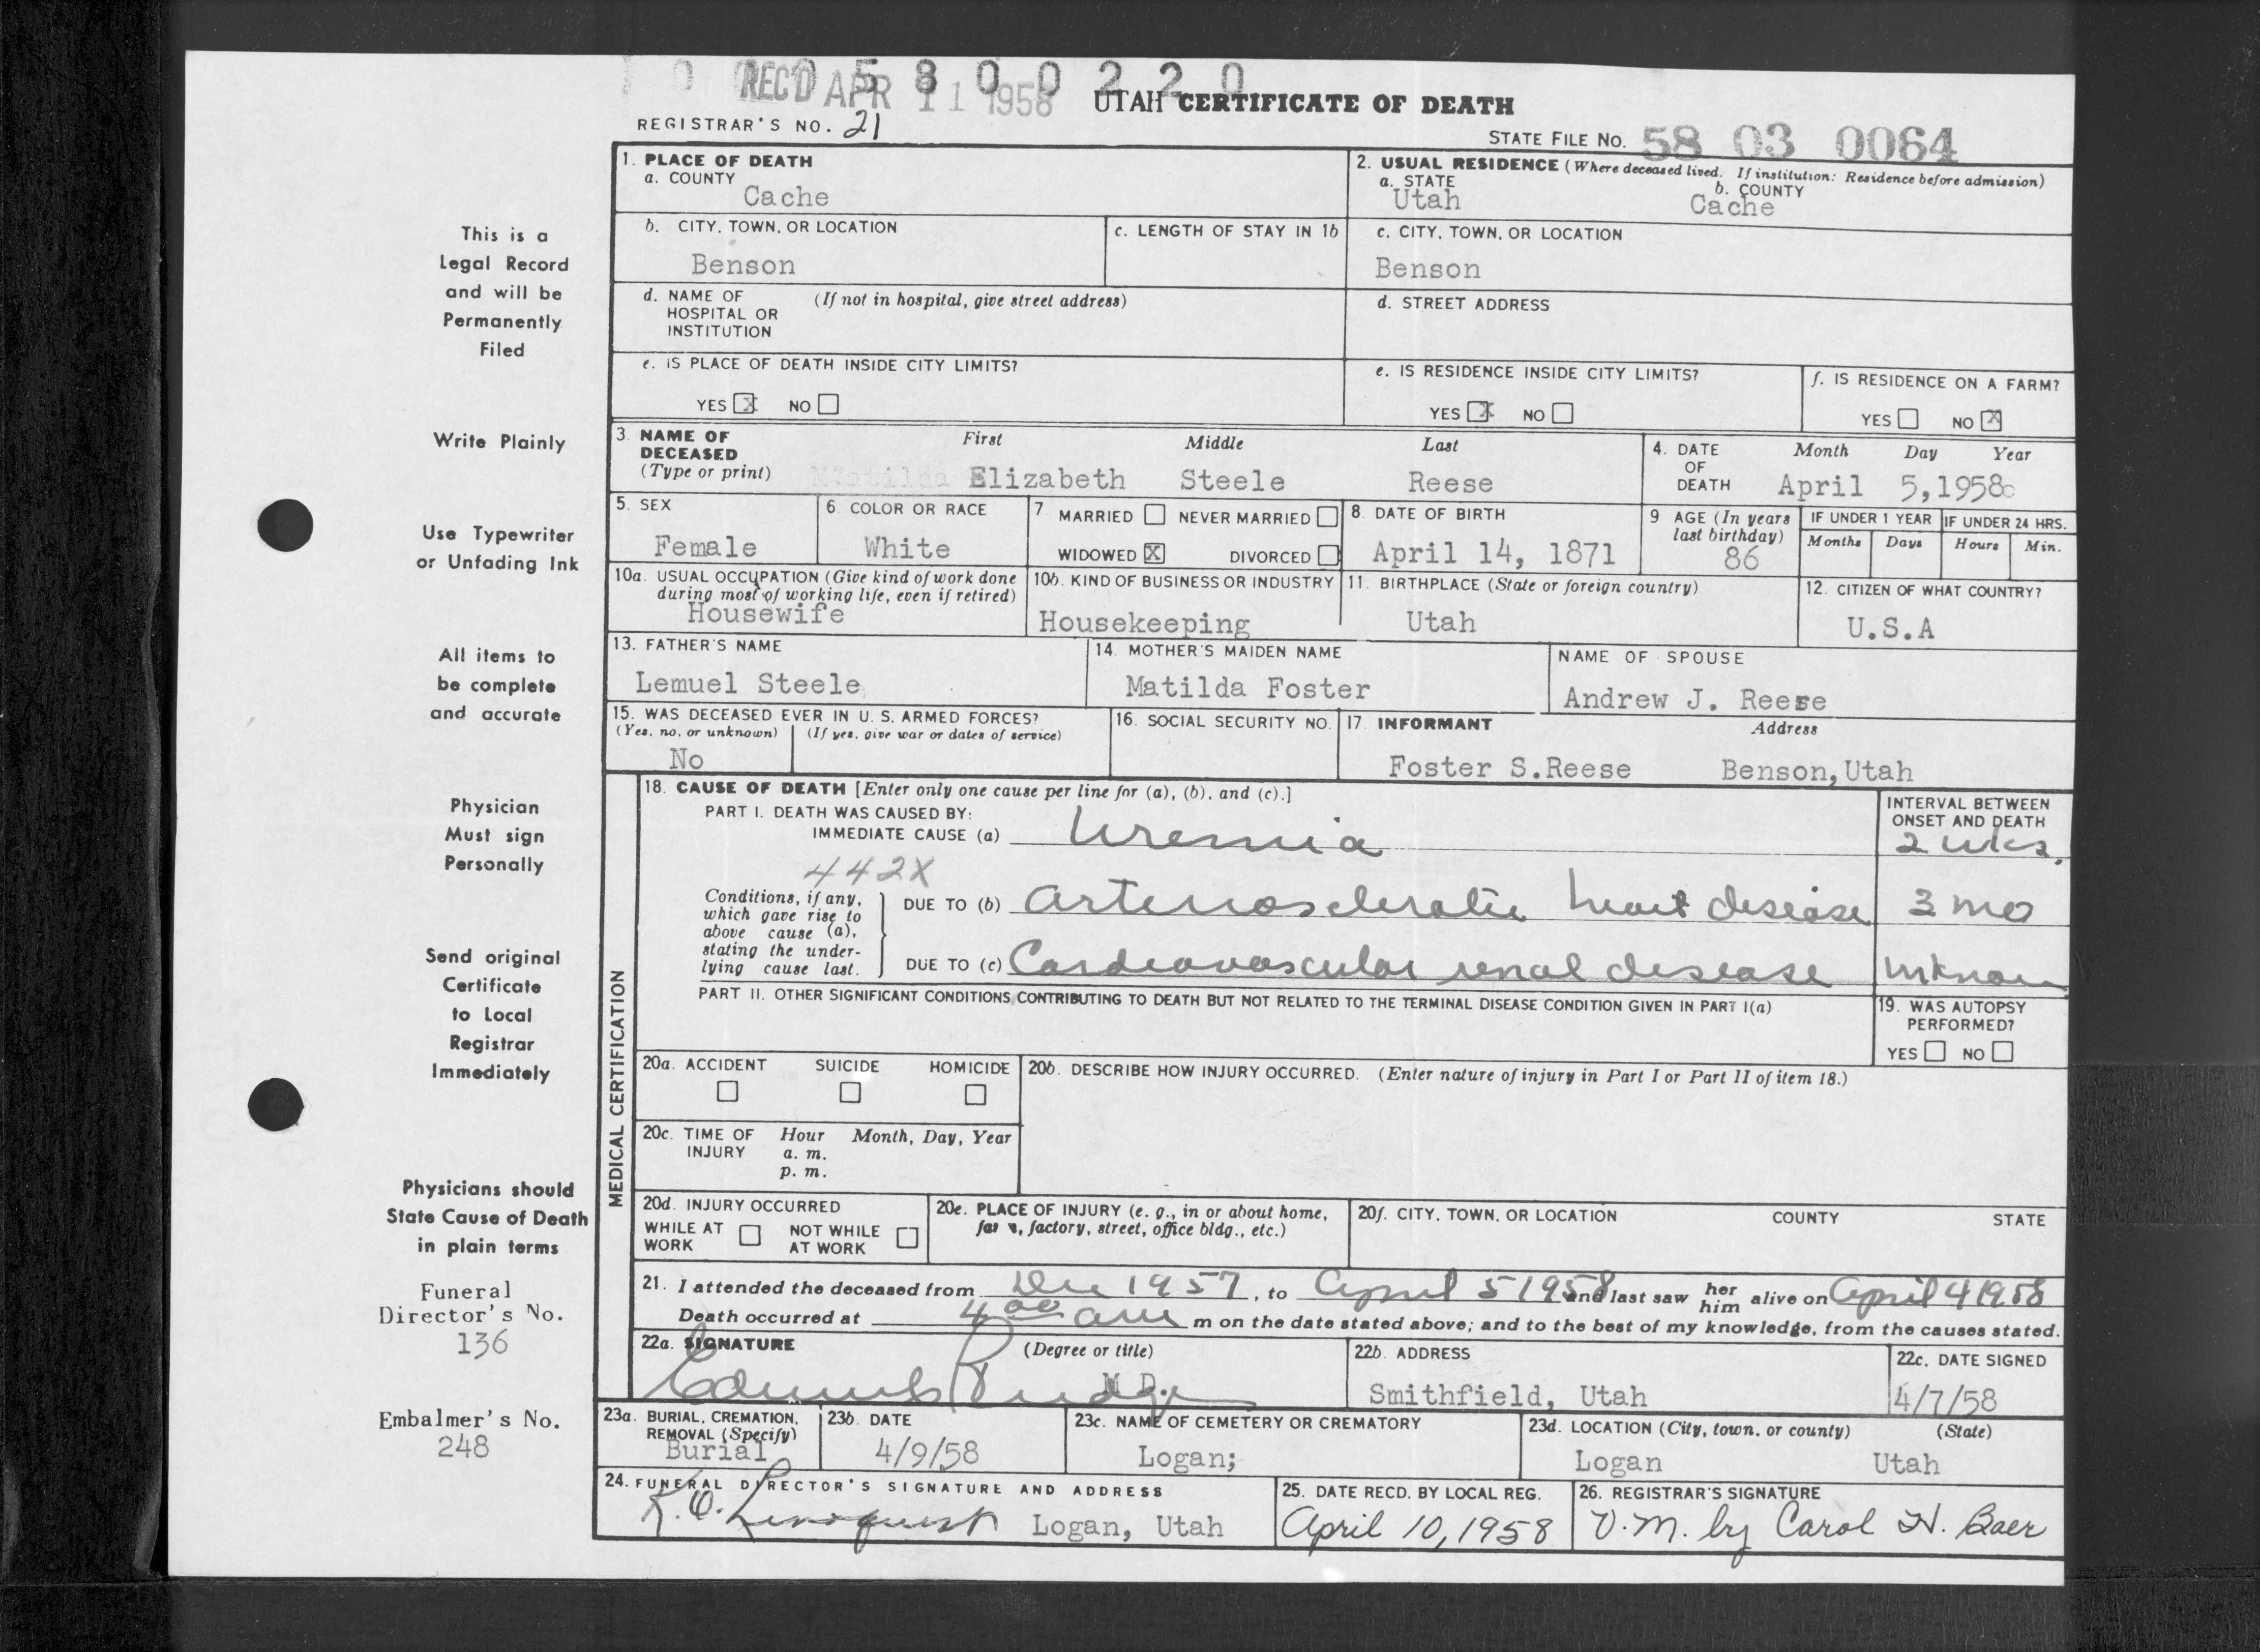 0 0 5 8 0 0 2 2 0
REC'D APR 11 1958 UTAH CERTIFICATE OF DEATH
REGISTRAR'S NO. 21
STATE FILE NO. 58 03 0064
1. PLACE OF DEATH
a. COUNTY
Cache
2. USUAL RESIDENCE (Where deceased lived. If institution: Residence before admission)
a. STATE b. COUNTY
Utah Cache
b. CITY, TOWN, OR LOCATION
Benson
c. LENGTH OF STAY IN 1b
c. CITY, TOWN, OR LOCATION
Benson
d. NAME OF (If not in hospital, give street address)
HOSPITAL OR
INSTITUTION
d. STREET ADDRESS
e. IS PLACE OF DEATH INSIDE CITY LIMITS?
YES X NO
e. IS RESIDENCE INSIDE CITY LIMITS?
YES X NO
f. IS RESIDENCE ON A FARM?
YES NO X
This is a
Legal Record
and will be
Permanently
Filed
Write Plainly
Use Typewriter
or Unfading Ink
All items to
be complete
and accurate
Physician
Must sign
Personally
Send original
Certificate
to Local
Registrar
Immediately
Physicians should
State Cause of Death
in plain terms
Funeral
Director's No.
136
Embalmer's No.
248
3. NAME OF DECEASED First Middle Last
(Type or print) Elizabeth Steele Reese
4. DATE OF DEATH Month Day Year
April 5,1958
5. SEX
Female
6. COLOR OR RACE
White
7 MARRIED NEVER MARRIED
WIDOWED X DIVORCED
8. DATE OF BIRTH
April 14, 1871
9 AGE (In years
last birthday)
86
IF UNDER 1 YEAR
Months Days
IF UNDER 24 HRS.
Hours Min.
10a. USUAL OCCUPATION (Give kind of work done
during most of working life, even if retired)
Housewife
10b. KIND OF BUSINESS OR INDUSTRY
Housekeeping
11. BIRTHPLACE (State or foreign country)
Utah
12. CITIZEN OF WHAT COUNTRY?
U.S.A
13. FATHER'S NAME
Lemuel Steele
14. MOTHER'S MAIDEN NAME
Matilda Foster
NAME OF SPOUSE
Andrew J. Reese
15. WAS DECEASED EVER IN U. S. ARMED FORCES?
(Yes, no, or unknown) (If yes, give war or dates of service)
No
16. SOCIAL SECURITY NO.
17. INFORMANT Address
Foster S.Reese Benson,Utah
MEDICAL CERTIFICATION
18. CAUSE OF DEATH [Enter only one cause per line for (a), (b), and (c).]
PART I. DEATH WAS CAUSED BY:
IMMEDIATE CAUSE (a) Uremia
INTERVAL BETWEEN
ONSET AND DEATH
2 wks.
442X
Conditions, if any,
which gave rise to
above cause (a),
stating the under-
lying cause last.
DUE TO (b) Arteriosclerotic heart disease 3 mo
DUE TO (c) Cardiovascular renal disease unknown
PART II. OTHER SIGNIFICANT CONDITIONS CONTRIBUTING TO DEATH BUT NOT RELATED TO THE TERMINAL DISEASE CONDITION GIVEN IN PART I(a)
19. WAS AUTOPSY
PERFORMED?
YES NO
20a. ACCIDENT SUICIDE HOMICIDE
20b. DESCRIBE HOW INJURY OCCURRED. (Enter nature of injury in Part I or Part II of item 18.)
20c. TIME OF Hour Month, Day, Year
INJURY a. m.
p. m.
20d. INJURY OCCURRED
WHILE AT NOT WHILE
WORK AT WORK
20e. PLACE OF INJURY (e. g., in or about home,
farm, factory, street, office bldg., etc.)
20f. CITY, TOWN, OR LOCATION COUNTY STATE
21. I attended the deceased from Dec 1957, to April 5 1958 and last saw her him alive on April 4 1958
Death occurred at 4 00 am m on the date stated above; and to the best of my knowledge, from the causes stated.
22a. SIGNATURE (Degree or title)
M D.
22b. ADDRESS
Smithfield, Utah
22c. DATE SIGNED
4/7/58
23a. BURIAL, CREMATION,
REMOVAL (Specify)
Burial
23b. DATE
4/9/58
23c. NAME OF CEMETERY OR CREMATORY
Logan;
23d. LOCATION (City, town, or county) (State)
Logan Utah
24. FUNERAL DIRECTOR'S SIGNATURE AND ADDRESS
K.O. Lindquist Logan, Utah
25. DATE RECD. BY LOCAL REG.
April 10, 1958
26. REGISTRAR'S SIGNATURE
V.M. by Carol H. Baer